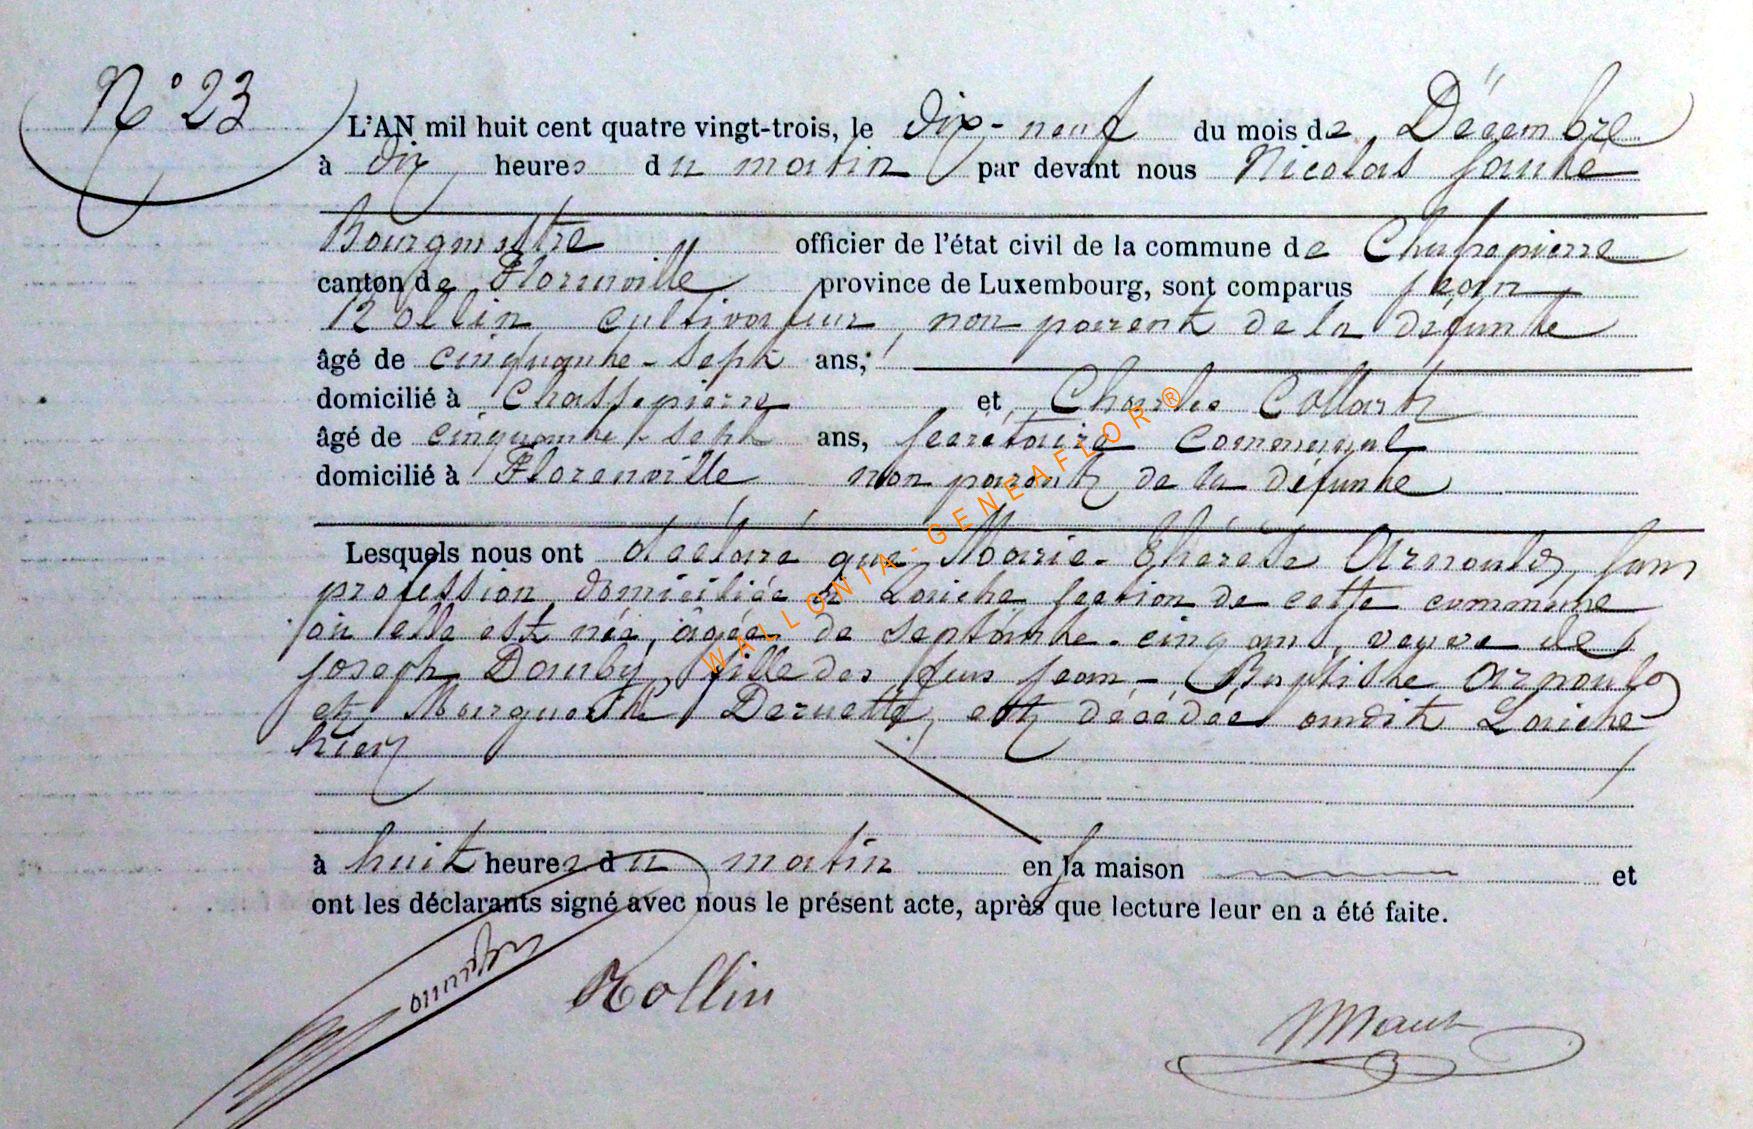 N° 23
L'AN mil huit cent quatre vingt-trois, le dix-neuf du mois de Décembre
à dix heures du matin par devant nous Nicolas
Bourgmestre officier de l'état civil de la commune de Chassepierre
canton de Florenville province de Luxembourg, sont comparus Jean
Rollin cultivateur, non parent de la défunte
âgé de cinquante-sept ans;
domicilié à Chassepierre et Charles Collart
âgé de cinquante-sept ans, secrétaire communal
domicilié à Florenville non parent de la défunte
Lesquels nous ont déclaré que Marie-Thérèse Arnould, sans
profession, domiciliée à Laiche section de cette commune
où elle est née, âgée de septante-cinq ans, veuve de
Joseph Dauby, fille des feus Jean-Baptiste Arnould
et Marguerite est décédée audit Laiche
hier
à huit heures du matin en sa maison et
ont les déclarants signé avec nous le présent acte, après que lecture leur en a été faite.
Rollin
WALLONIA-GENEAFLOR ®